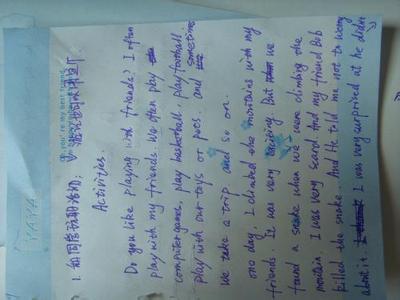 Activities.
Do you like playing with friends? I often
play with my friends. We often play
computer games, play basketball, play football
play with our toys or pets, and sometimes
We take a trip and so on.
one day, I climbed the montains with my
friends. It was very exciting. But we
found a snake when we were climbing the
montain I was very scared and my friend Bob
killed the snake. And he told me not to worry
about it. I was very surprised at he didn